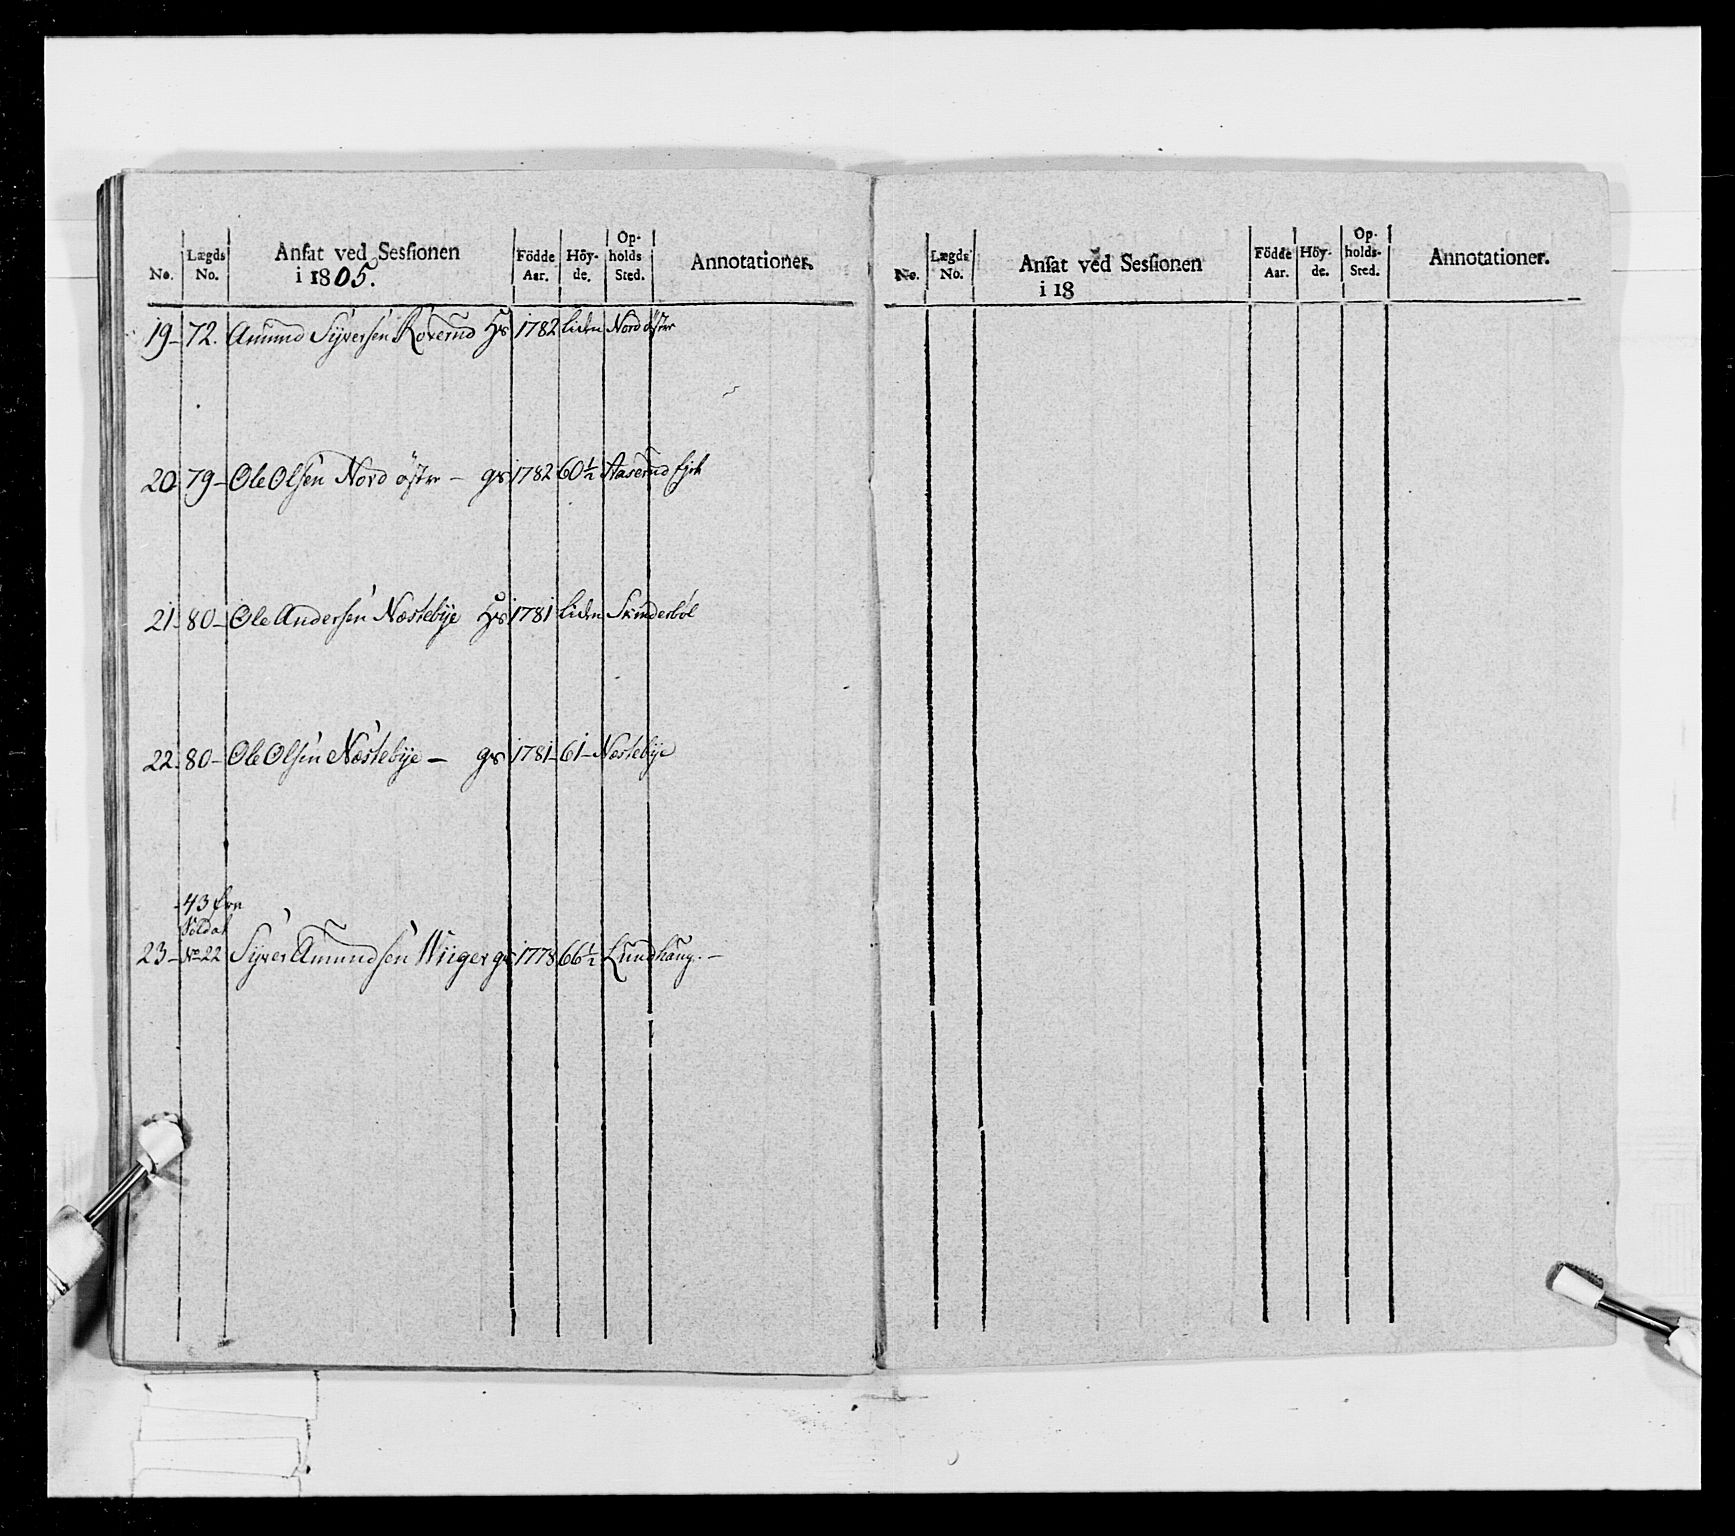 No. Lægds No. Ansat ved Sessionen i 1805. Födde Aar. Höy-de. Op-holds Sted. Annotationer.
19- 72. Amund Syversen Roverud Hs 1782 liden Nord östre
20. 79- Ole Olsen Nord östre - gs 1782 60½ Aaserud
21. 80- Ole Andersen Næstebye Hs 1781 liden Skinderböl
22. 80- Ole Olsen Næstebye - gs 1781- 61- Næstebye
43
Soldat
23- No 22 Syver Amundsen Wiiger gs 1778 66½ Lundhaug. -
No. Lægds No. Ansat ved Sessionen i 18 Födde Aar. Höy-de. Op-holds-Sted. Annotationer.